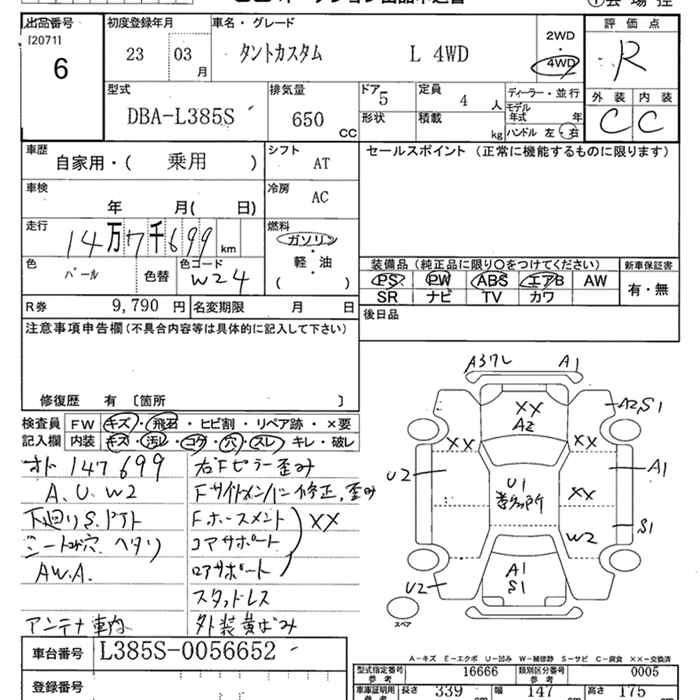 出品番号 初度登録年月 車名・グレード 評価点
[2071]
6
23 03 月 タントカスタム L 4WD
2WD
・
4WD
R
型式 排気量 ドア 定員 ディーラー・並行 外装 内装
DBA-L385S 650 CC 5 4 人
モデル年式 年
形状 積載 kg ハンドル 左・右 C C
車歴 シフト セールスポイント (正常に機能するものに限ります)
自家用・( 乗用 ) AT
車検 冷房
年 月( 日) AC
走行 燃料
14万7千699 km ガソリン
軽・油
( )
色 パール 色替 色コード W24
装備品(純正品に限り○をつけてください) 新車保証書
PS PW ABS エアB AW 有・無
SR ナビ TV カワ
R券 9,790 円 名変期限 月 日
後日品
注意事項申告欄(不具合内容等は具体的に記入して下さい)
修復歴 有 〔箇所 〕
検査員 FW キズ・飛石・ヒビ割・リペア跡・×要
記入欄 内装 キズ・汚レ・コゲ・穴・スレ・キレ・破レ
オド 147699
A.U.W2
下廻りS.
シートコゲ穴 ヘタリ
AW.A.
アンテナ車内
右Fピラー歪み
Fサイドメンバー修正,歪み
Fホースメント XX
コアサポート
ロアサポート
スタッドレス
外装黄ばみ
A37L A1
XX
A2
A2S1
XX XX
U2 A1
U1
XX
S1
W2
A1
S1
U2
スペア
車台番号 L385S-0056652
登録番号
A-キズ E-エクボ U-凹み W-補修跡 S-サビ C-腐食 XX-交換済
型式指定番号 参考 16666 類別区分番号 参考 0005
車庫証明用 参考 長さ 339 cm 幅 147 cm 高さ 175 cm